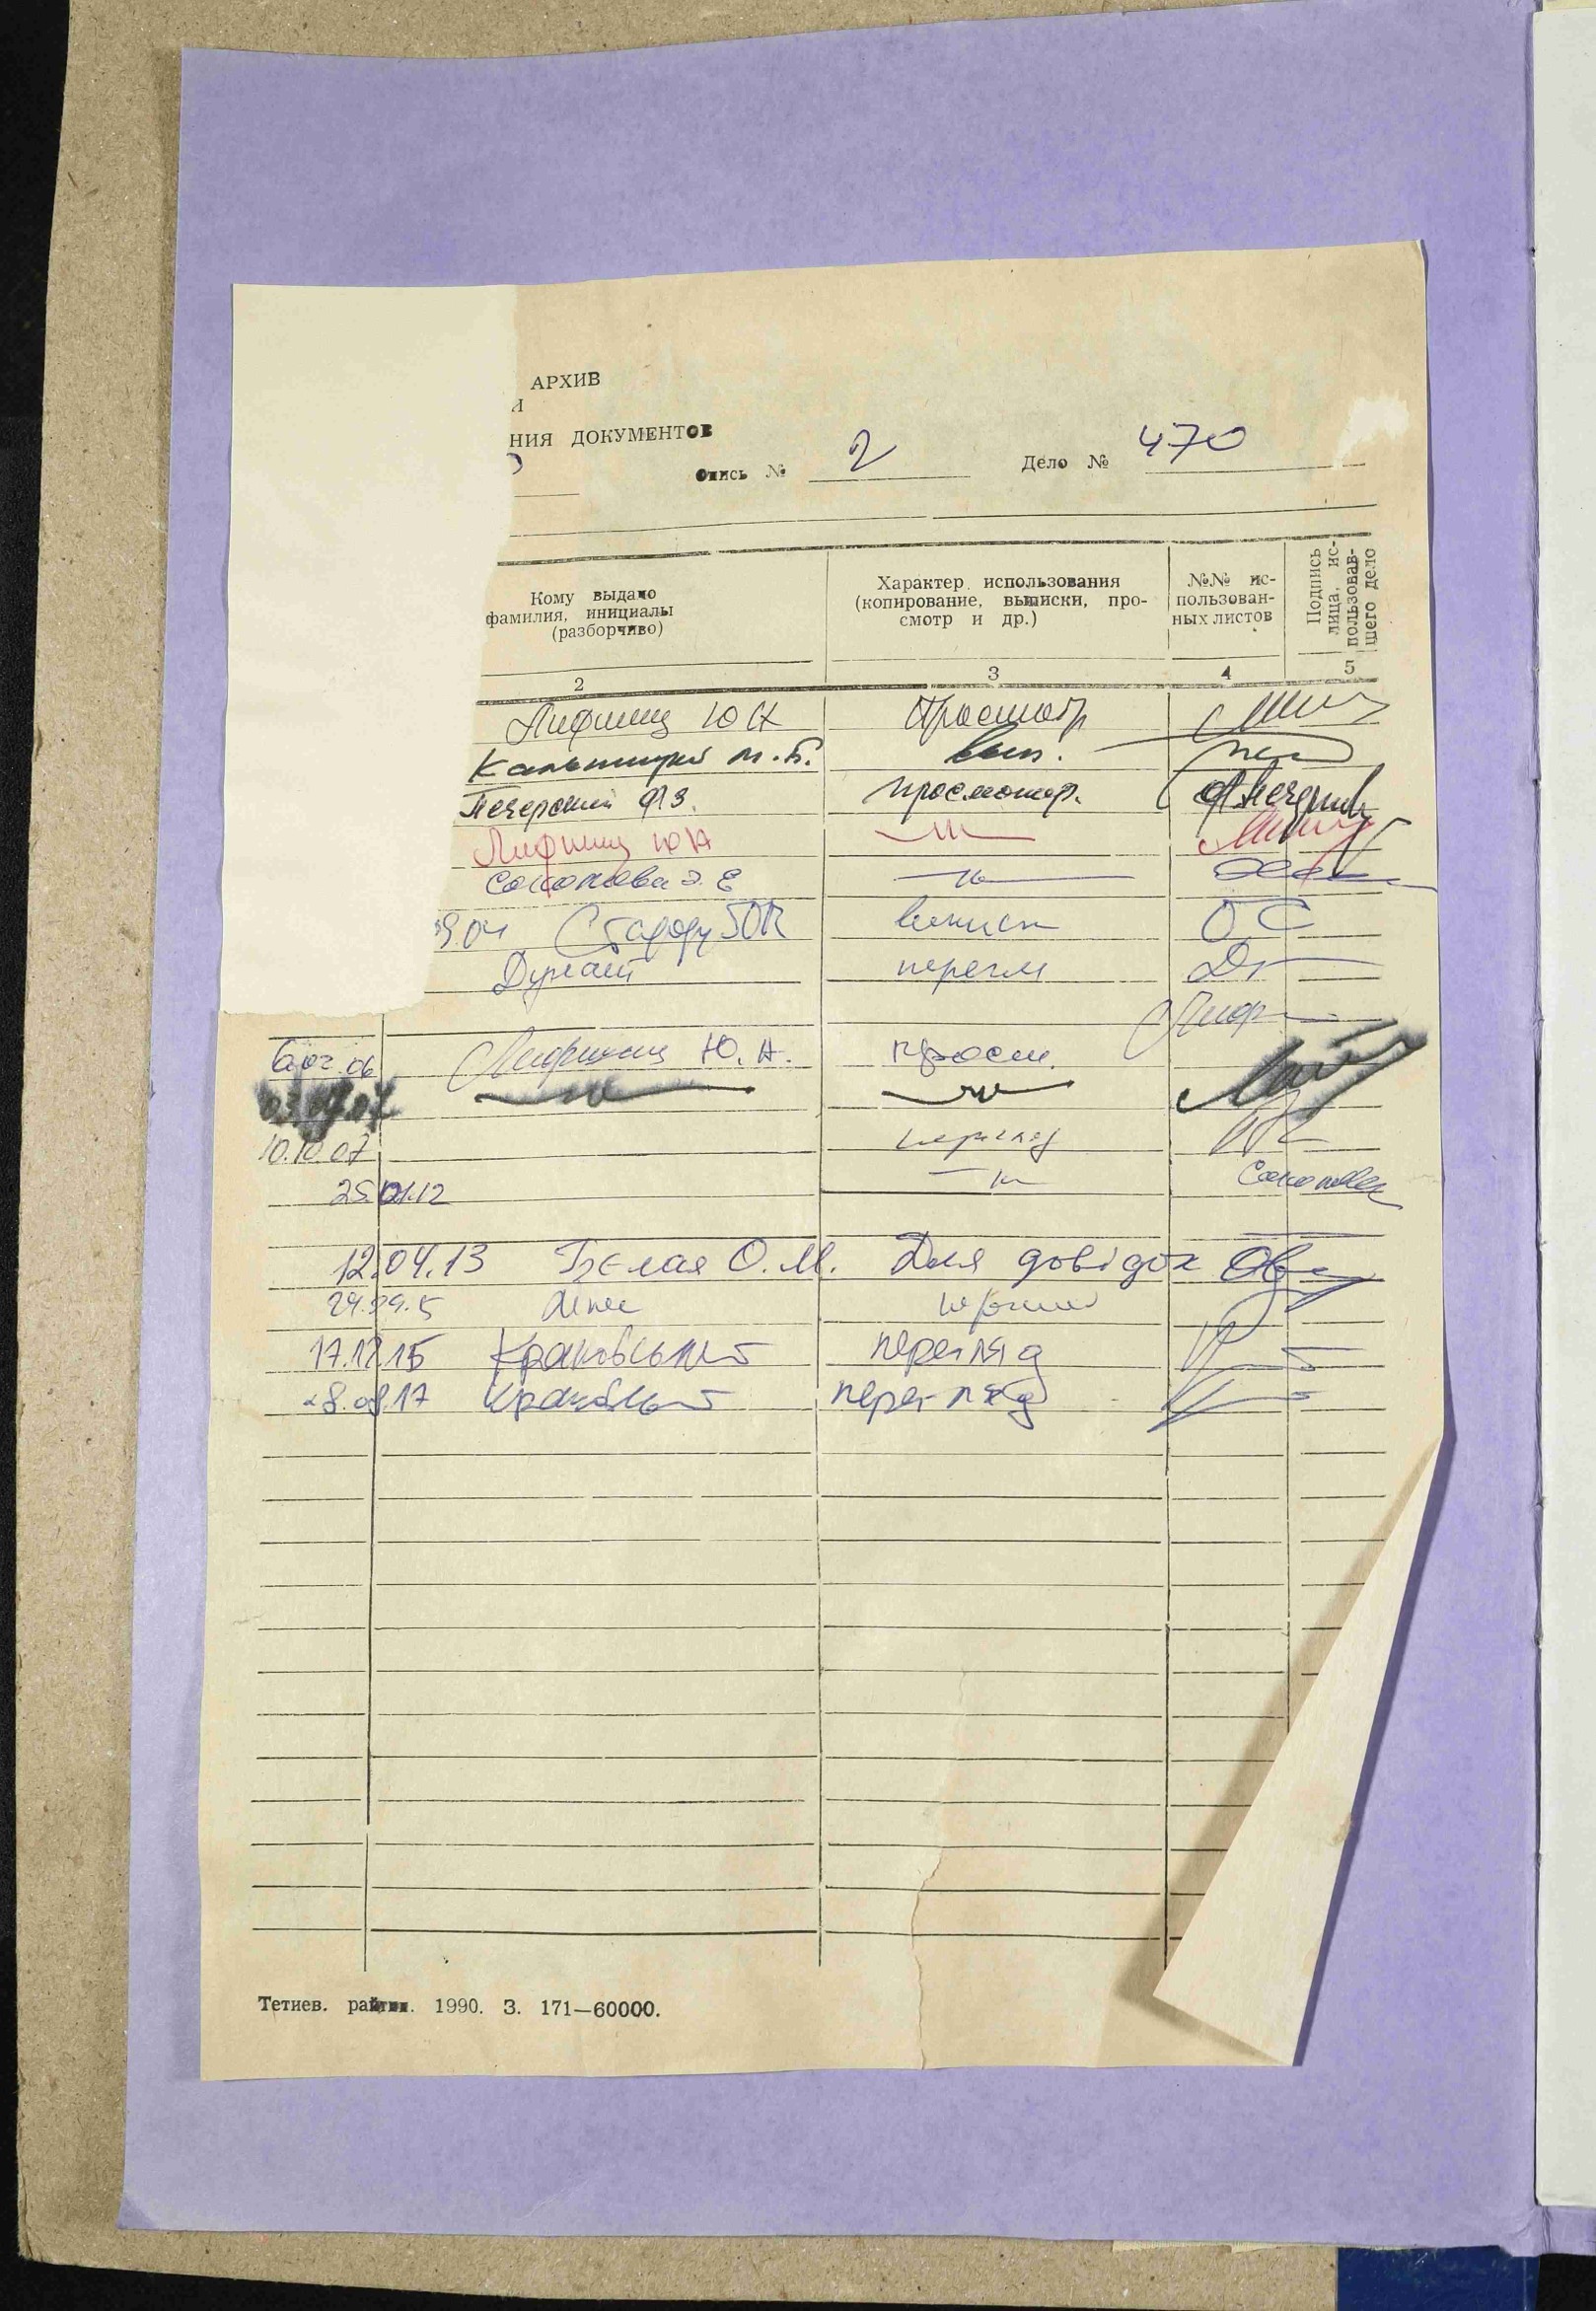 АРХИВ
И
НИЯ ДОКУМЕНТОВ
Опись № 2 Дело № 470
Кому выдано
фамилия, инициалы
(разборчиво)
Характер использования
(копирование, выписки, про-
смотр и др.)
№№ ис-
пользован-
ных листов
Подпись
лица, ис-
пользовав-
шего дело
2 3 4 5
Лифшиц Ю А Просмотр
Кальницкий М.Б. вып.
Печерский Ф З. просмотр. Печерский
Лифшиц Ю А — " —
Соколова Э. Е — " —
9.04
перегл
06 Лифшиц Ю. А. просм.
03.07.07 — " — — " —
10.10.07 перегляд
25.01.12 — " — Соколова
12.04.13 Белая О.М. Для довідок
17.12.15 Краковський перегляд
8.08.17 Краковський перегляд
Тетиев. райтип. 1990. З. 171—60000.